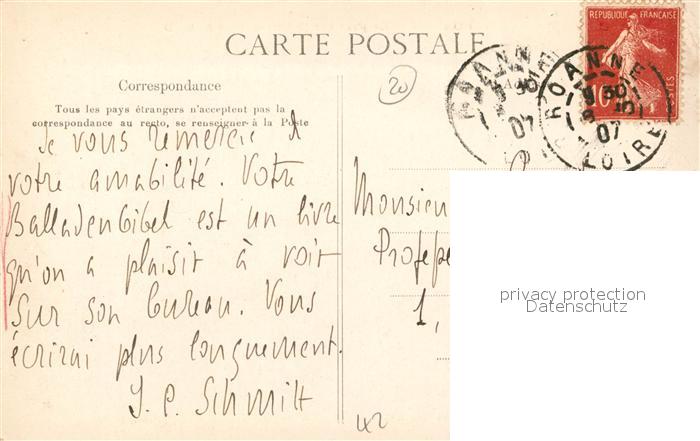 CARTE POSTALE
RÉPUBLIQUE FRANÇAISE
POSTES
10
ROANNE
ROANNE
LOIRE
07
07
20
Correspondance
Tous les pays étrangers n'acceptent pas la
correspondance au recto, se renseigner à la Poste
Je vous remercie de
votre amabilité. Votre
Balladenbibel est un livre
qu'on a plaisir à voir
sur son bureau. Vous
écrirai plus longuement.
J. P. Schmitt
42
Monsieu
Profess
1,
privacy protection
Datenschutz